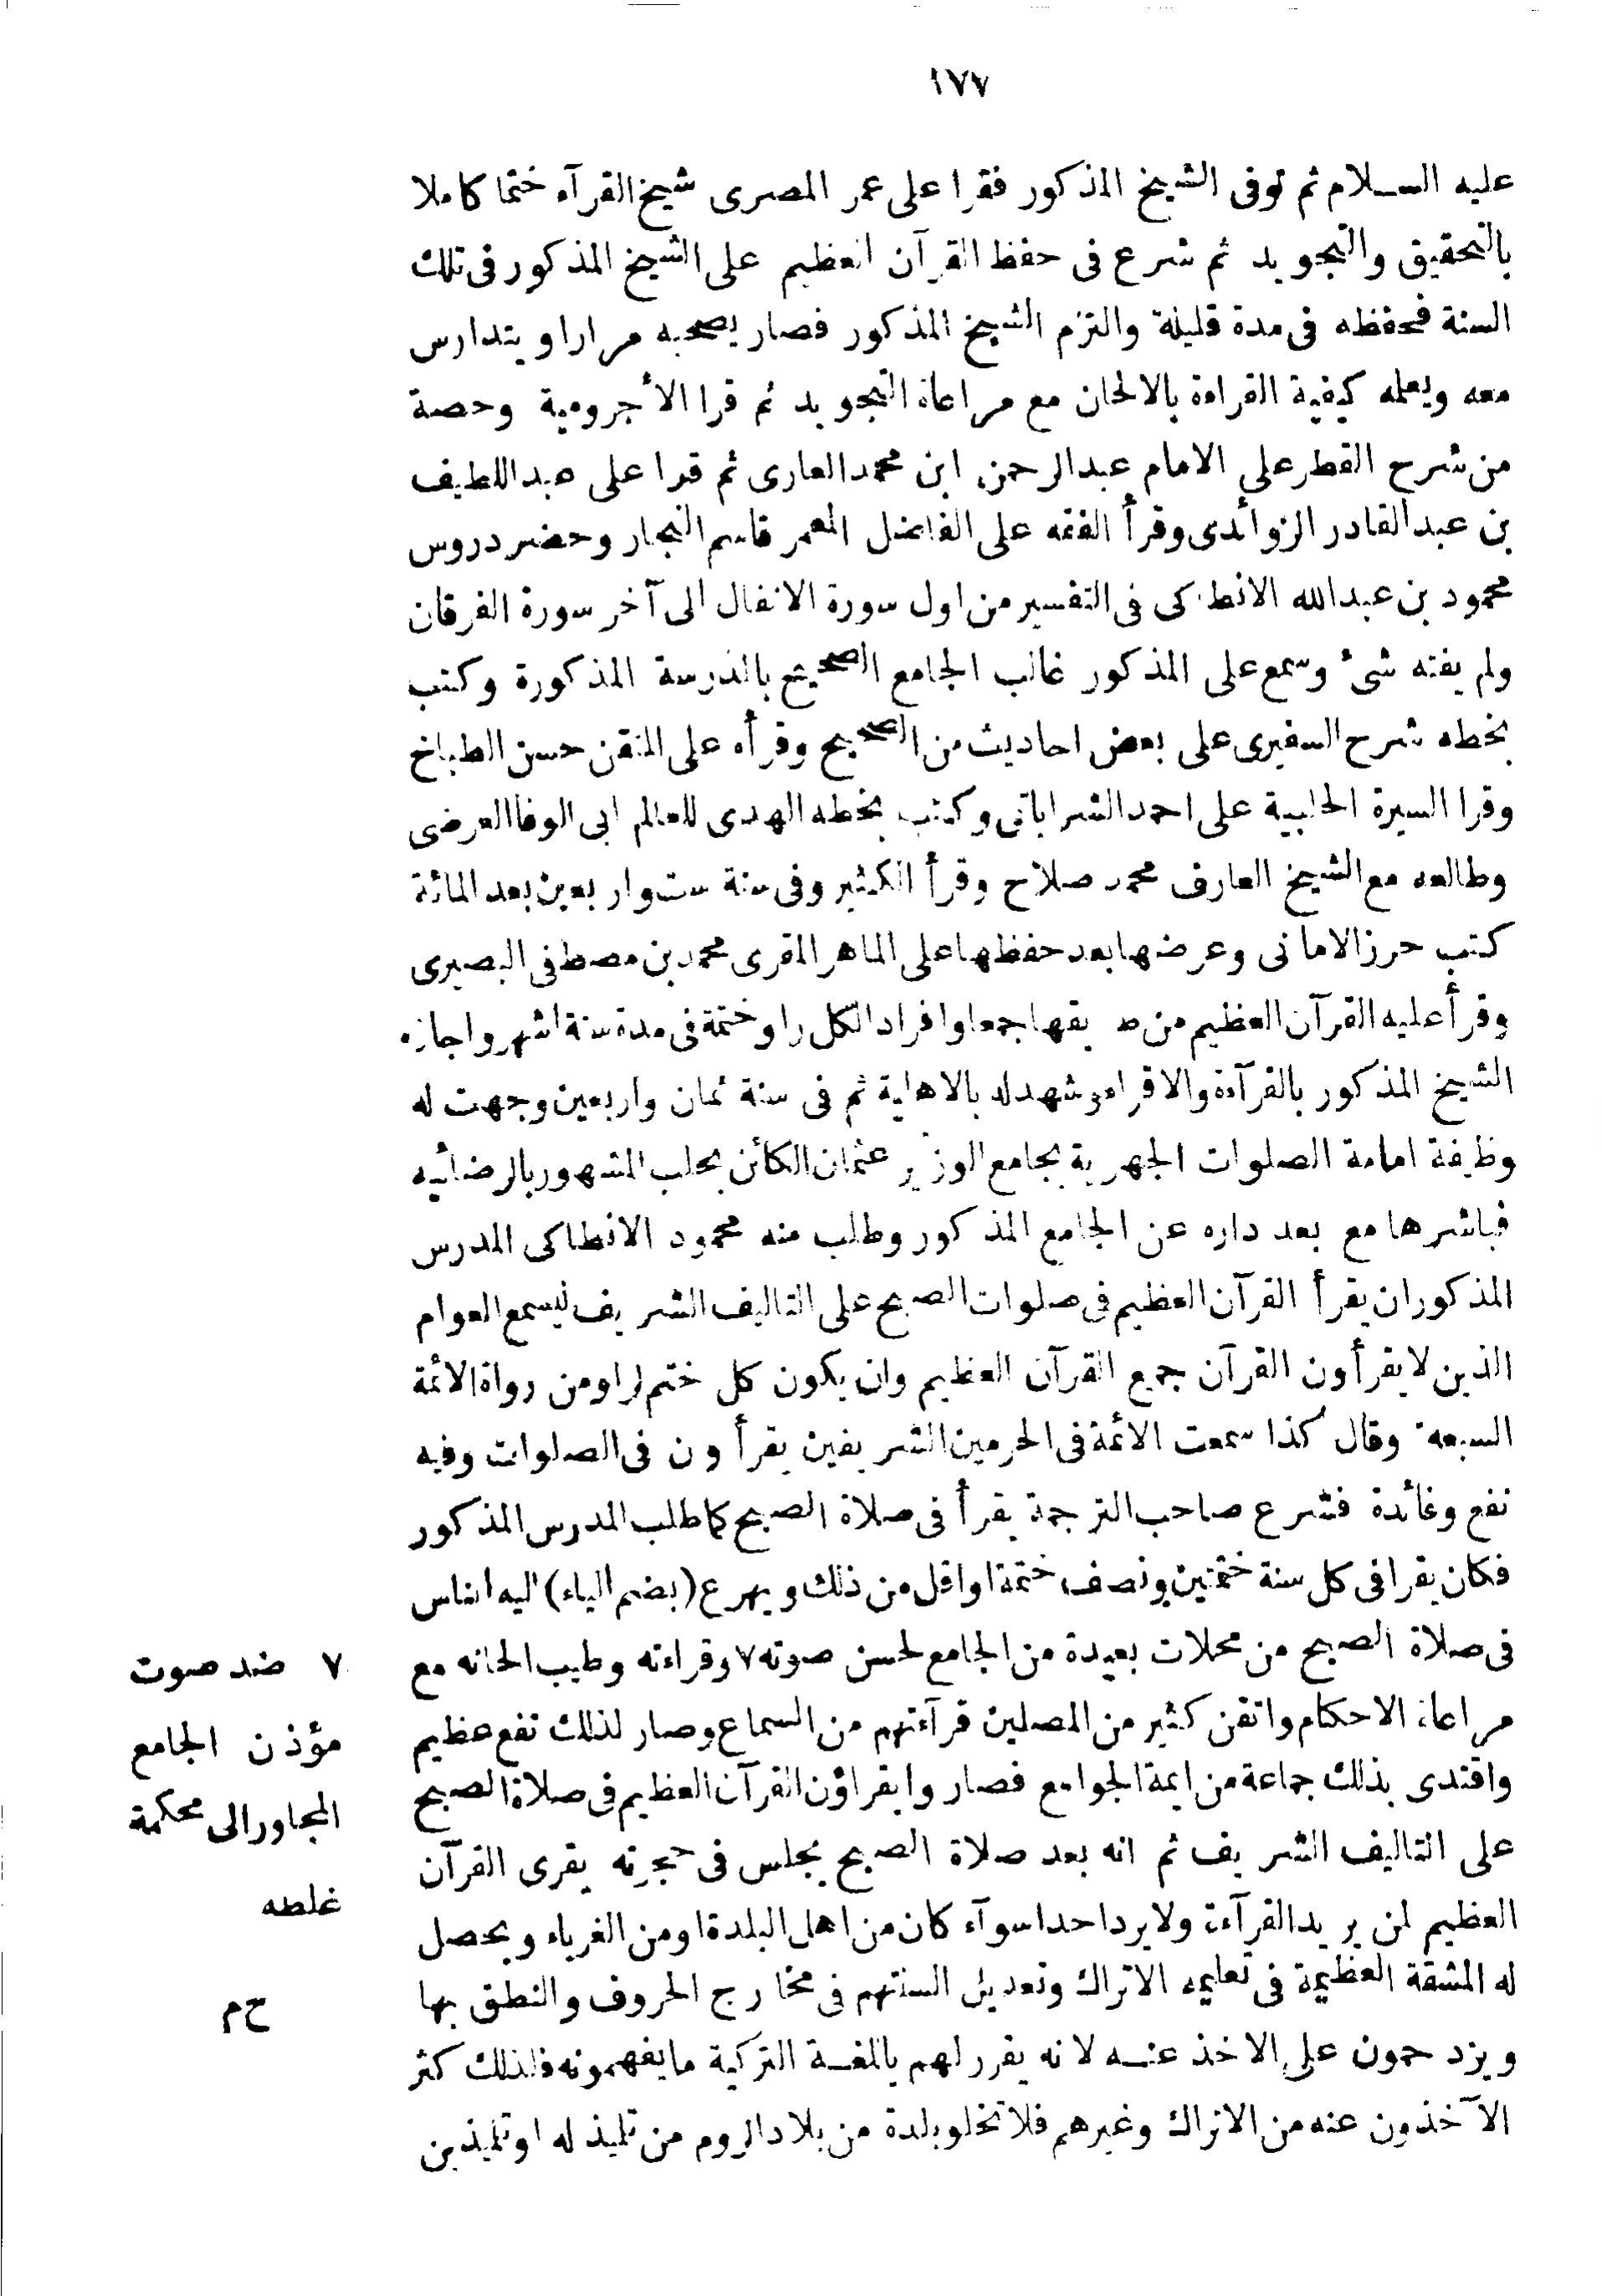 ١٧٧
عليه السلام ثم توفى الشيخ المذكور فقرا على عمر المصرى شيخ القرآء ختما كاملا
بالتحقيق والتجويد ثم شرع فى حفظ القرآن العظيم على الشيخ المذكور فى تلك
السنة فحفظه فى مدة قليلة والتزم الشيخ المذكور فصار يصحبه مرارا ويتدارس
معه ويعلمه كيفية القراءة بالالحان مع مراعاة التجويد ثم قرا الأجرومية وحصة
من شرح القطر على الامام عبدالرحمن ابن محمد العارى ثم قرا على عبداللطيف
بن عبدالقادر الزوائدى وقرأ الفقه على الفاضل المعمر قاسم النجار وحضر دروس
محمود بن عبدالله الانطاكى فى التفسير من اول سورة الانفال الى آخر سورة الفرقان
ولم يفته شئ وسمع على المذكور غالب الجامع الصحيح بالمدرسة المذكورة وكتب
بخطه شرح السفيرى على بعض احاديث من الصحيح وقرأه على المتقن حسن الطباخ
وقرا السيرة الحلبية على احمد الشراباتى وكتب بخطه الهدى للعالم ابى الوفا العرضى
وطالعه مع الشيخ العارف محمد صلاح وقرأ الكثير وفى سنة ست واربعين بعد المائة
كتب حرز الامانى وعرضها بعد حفظها على الماهر المقرى محمد بن مصطفى البصيرى
وقرأ عليه القرآن العظيم من طريقها جمعا وافراد الكل راو ختمة فى مدة ستة اشهر واجازه
الشيخ المذكور بالقرآءة والاقراء وشهد له بالاهلية ثم فى سنة ثمان واربعين وجهت له
وظيفة امامة الصلوات الجهرية بجامع الوزير عثمان الكائن بحلب المشهور بالرضائيه
فباشرها مع بعد داره عن الجامع المذكور وطلب منه محمود الانطاكى المدرس
المذكور ان يقرأ القرآن العظيم فى صلوات الصبح على التاليف الشريف ليسمع العوام
الذين لا يقرأون القرآن جميع القرآن العظيم وان يكون كل ختم لراو من رواة الائمة
السبعة وقال كذا سمعت الأئمة فى الحرمين الشريفين يقرأون فى الصلوات وفيه
نفع وفائدة فشرع صاحب الترجمة يقرأ فى صلاة الصبح كما طلب المدرس المذكور
فكان يقرا فى كل سنة ختمتين ونصف ختمة او اقل من ذلك ويهرع (بضم الياء) اليه الناس
فى صلاة الصبح من محلات بعيدة من الجامع لحسن صوته ٧ وقراءته وطيب الحانه مع
مراعاة الاحكام واتقن كثير من المصلين قرآءتهم من السماع وصار لذلك نفع عظيم
واقتدى بذلك جماعة من ايمة الجوامع فصاروا يقراؤن القرآن العظيم فى صلاة الصبح
على التاليف الشريف ثم انه بعد صلاة الصبح يجلس فى حجرته يقرى القرآن
العظيم لمن يريد القرآءة ولا يرد احدا سوآء كان من اهل البلدة او من الغرباء ويحصل
له المشقة العظيمة فى تعليمه الاتراك وتعديل السنتهم فى مخارج الحروف والنطق بها
ويزدحمون على الاخذ عنه لانه يقرر لهم باللغة التركية ما يفهمونه فلذلك كثر
الآخذون عنه من الاتراك وغيرهم فلا تخلو بلدة من بلاد الروم من تلميذ له او تلميذين
٧ ضد صوت
مؤذن الجامع
المجاور الى محكمة
غلطه
ح م